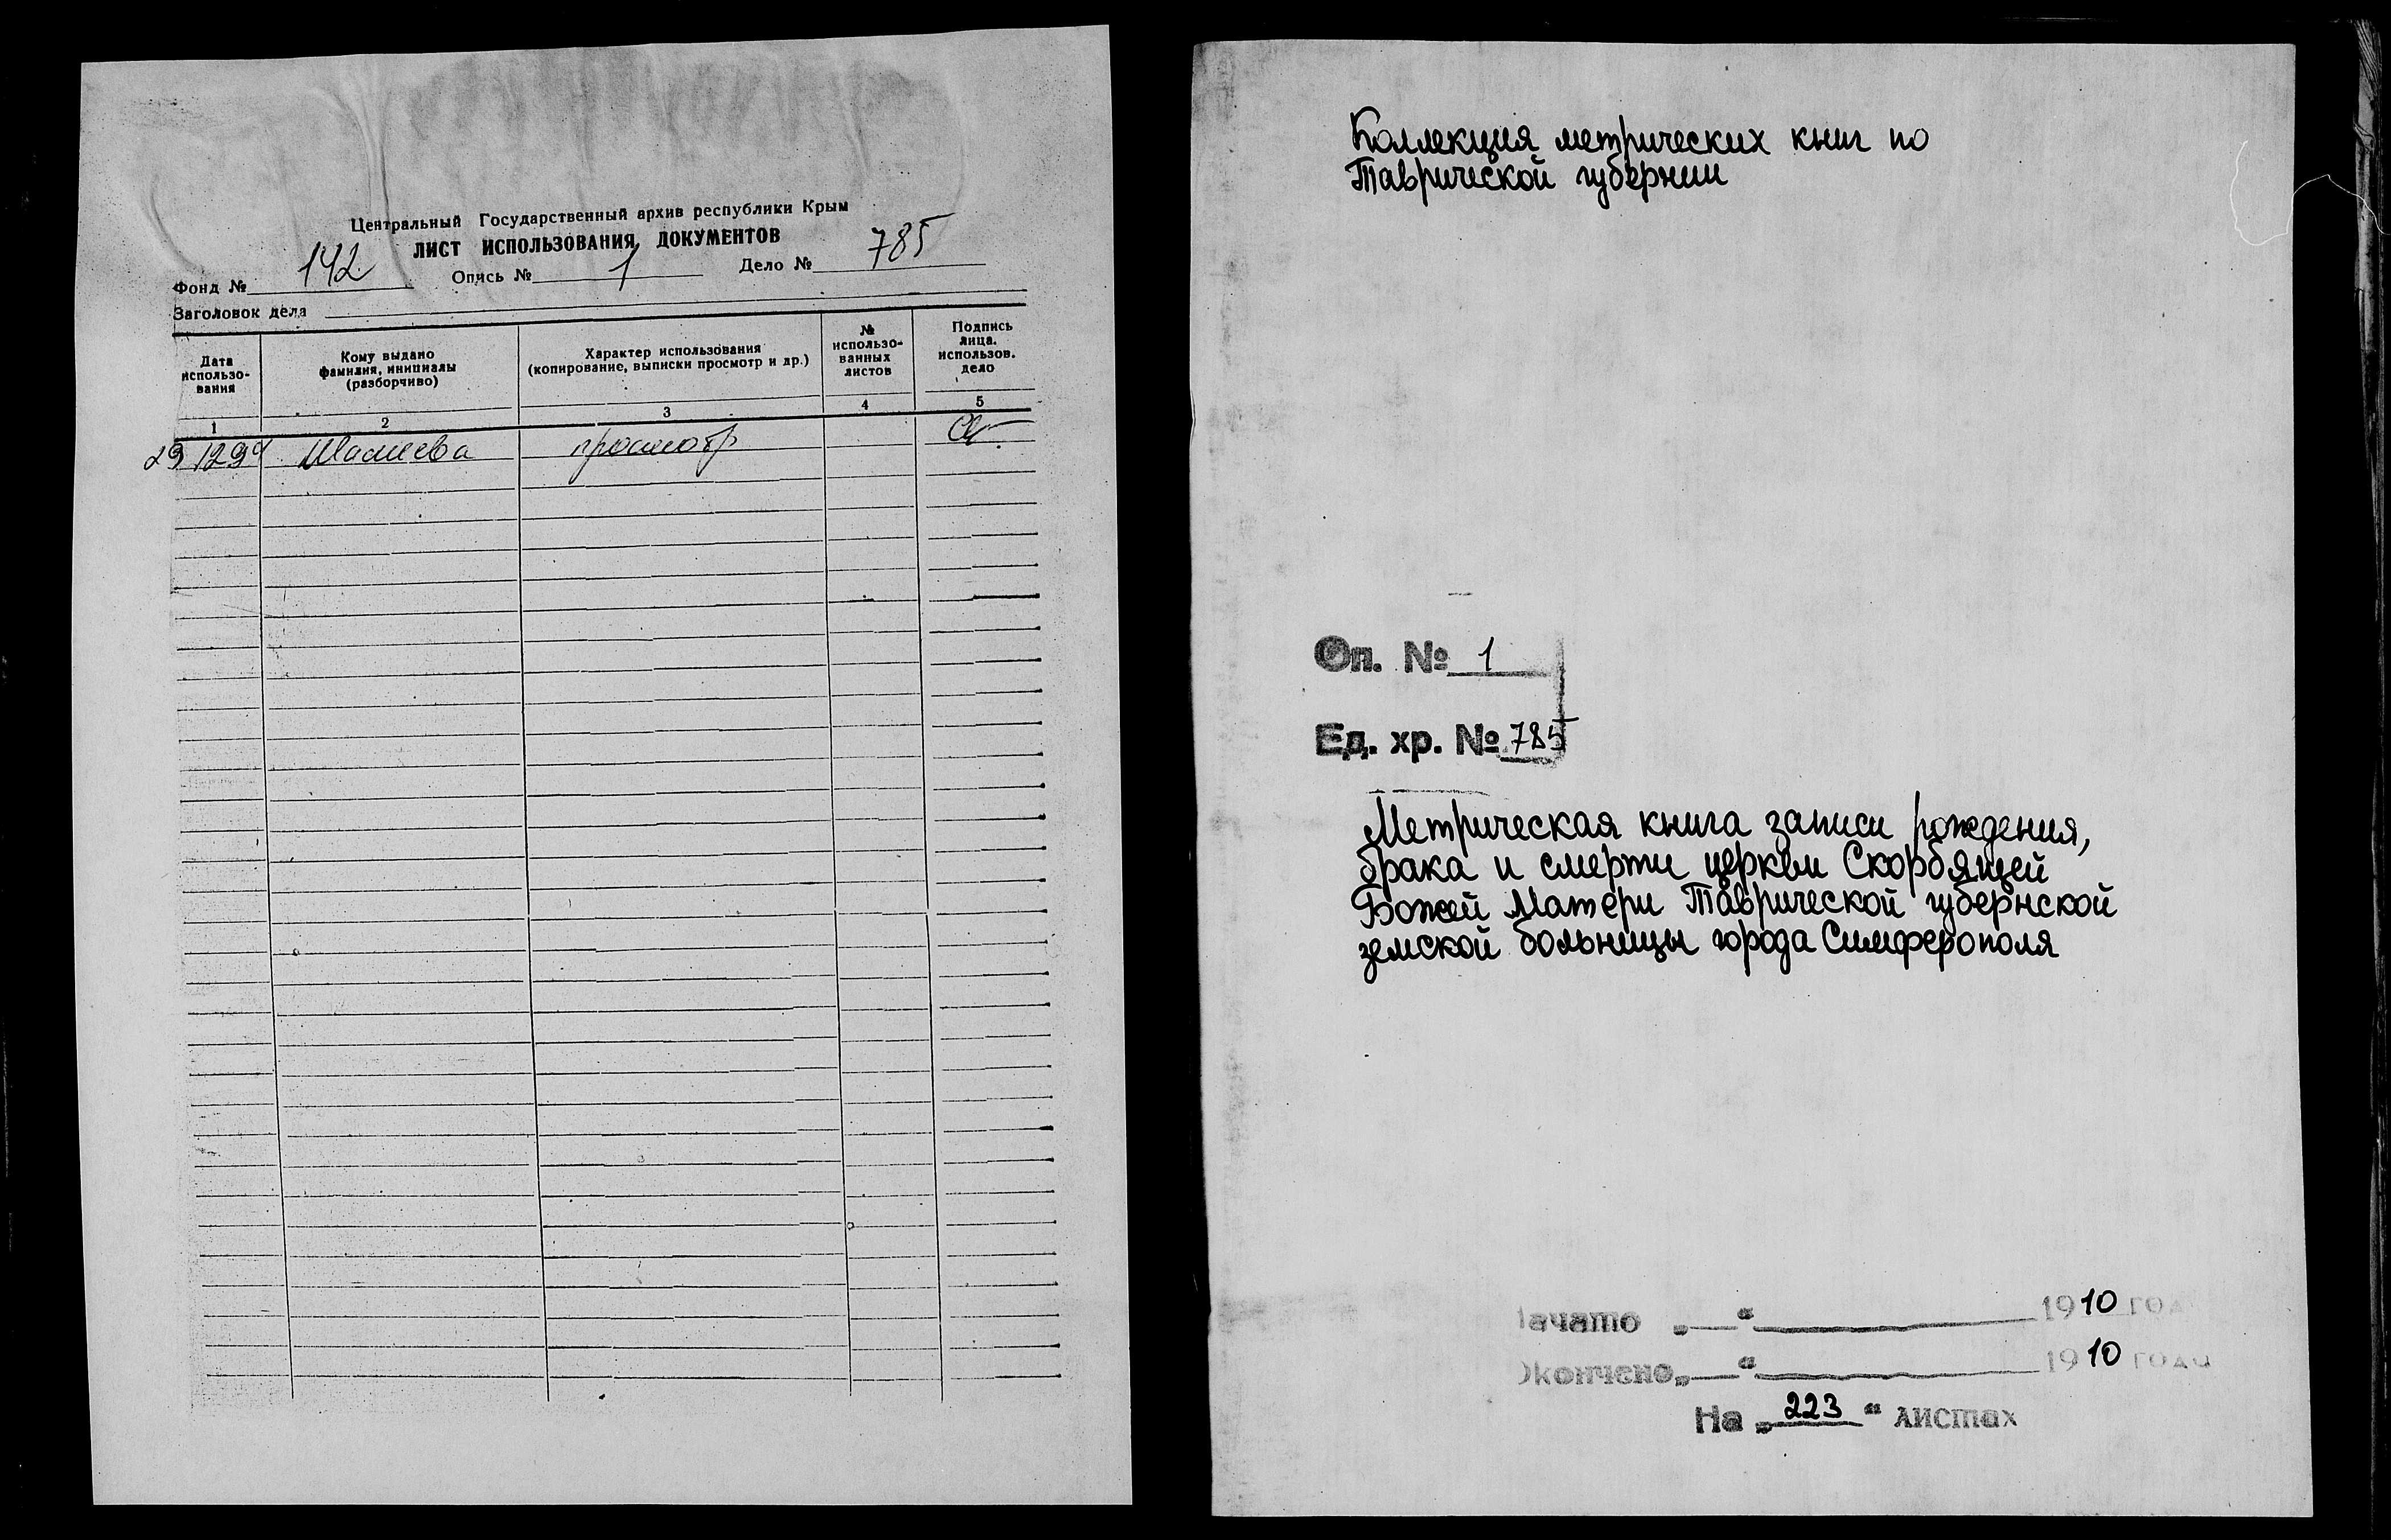 Центральный Государственный архив республики Крым
ЛИСТ ИСПОЛЬЗОВАНИЯ ДОКУМЕНТОВ
Фонд № 142 Опись № 1 Дело № 785
Заголовок дела
Дата использо-вания
Кому выдано фамилия, инициалы (разборчиво)
Характер использования (копирование, выписки просмотр и др.)
№ использо-ванных листов
Подпись лица. использов. дело
1 2 3 4 5
просмотр
Коллекция метрических книг по
Таврической губернии
Оп. № 1
Ед. хр. № 785
Метрическая книга записи рождения,
брака и смерти церкви Скорбящей
Божей Матери Таврической губернской
земской больницы города Симферополя
ачато „ “ 1910 год
Окончено „ “ 1910 года
На „ 223 “ листах